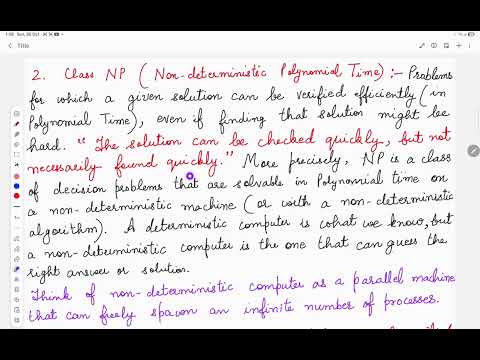 Title
2. Class NP (Non-deterministic Polynomial Time) :- Problems
for which a given solution can be verified efficiently (in
Polynomial Time), even if finding that solution might be
hard. "The solution can be checked quickly, but not
necessarily found quickly." More precisely, NP is a class
of decision problems that are solvable in Polynomial time on
a non-deterministic machine (or with a non-deterministic
algorithm). A deterministic computer is what we know, but
a non-deterministic computer is the one that can guess the
right answer or solution.
Think of non-deterministic computer as a parallel machine
that can freely spawn an infinite number of processes.